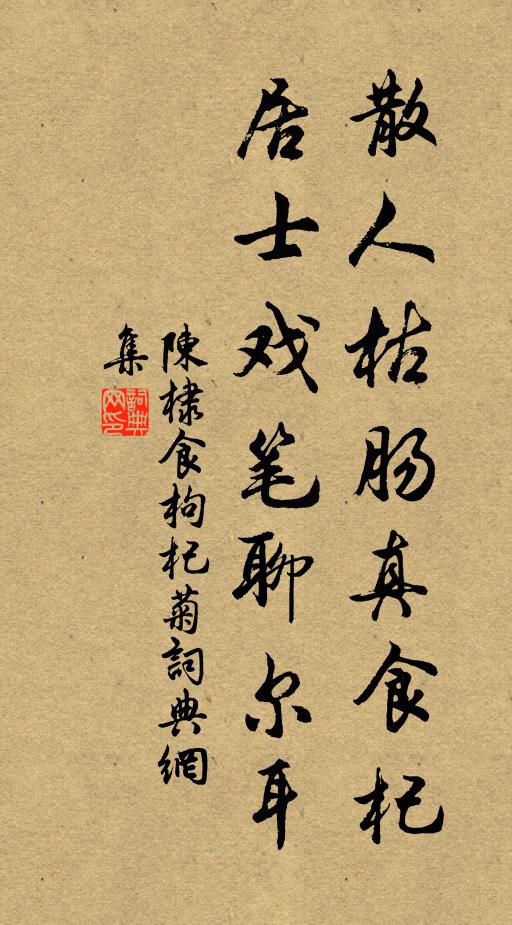 散人枯肠真食杞
居士戏笔聊尔耳
陳棣食枸杞菊詞典網
集
詞典
网印